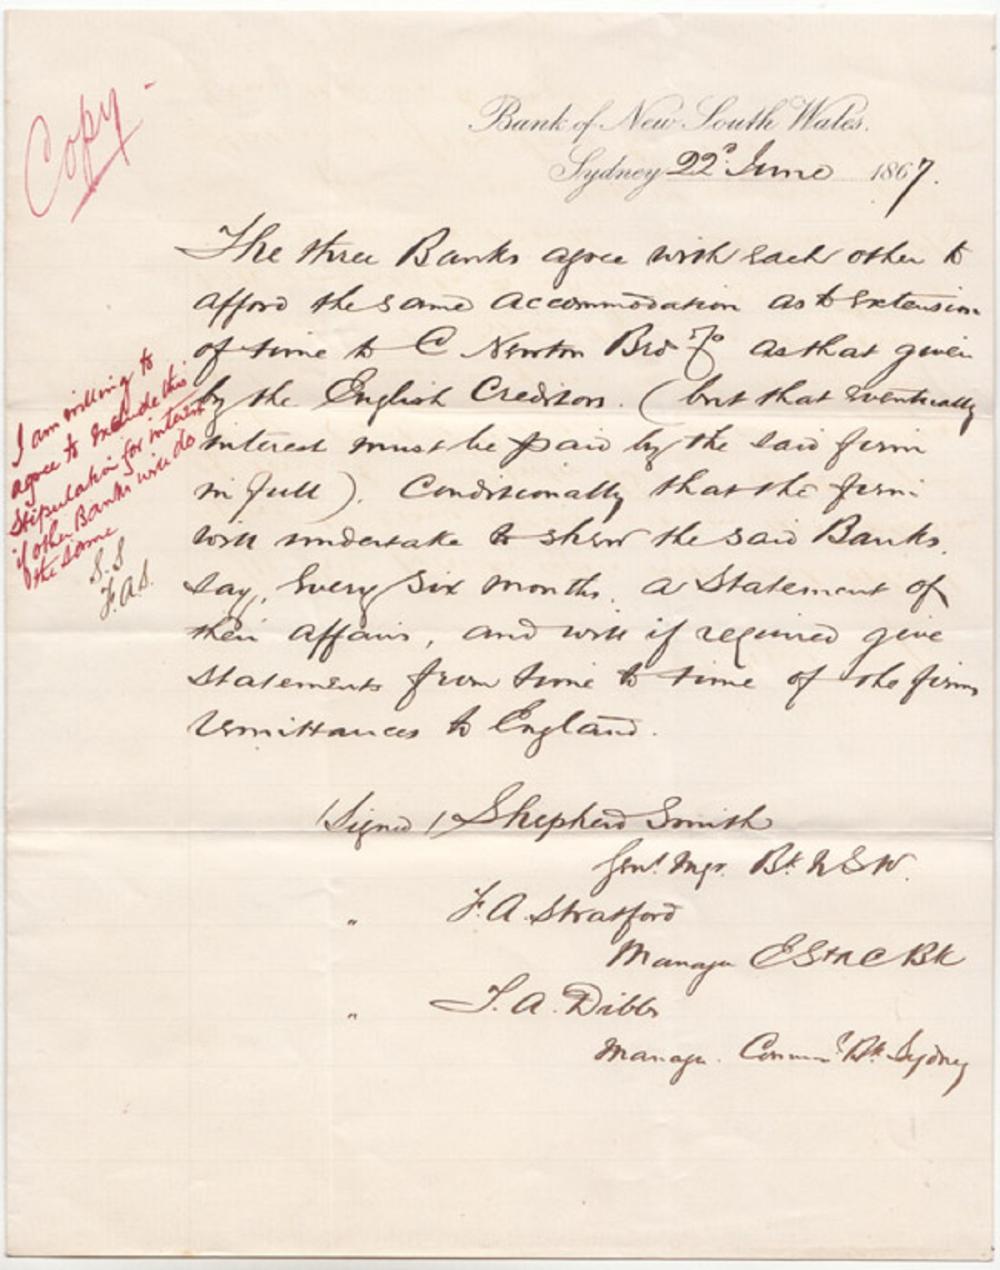 Copy
Bank of New South Wales.
Sydney 22d June 1867.
The three Banks agree with each other to
afford the same accommodation as to extension
of time to C Newton Bro & Co as that given
by the English Creditors. (but that eventually
interest must be paid by the said firm
in full). Conditionally that the firm
will undertake to shew the said Banks,
say, every six months, a Statement of
their affairs, and will if required give
statements from time to time of the firms
remittances to England.
I am willing to
agree to exclude this
stipulation for interest
if other Banks will do
the same
S.S
F.A.S.
(Signed) Shepherd Smith
Genl. Mgr. Bk N S W.
" F. A. Stratford
Manager E S & A C Bk
" T. A. Dibbs
Manager. Comml. Bk. Sydney